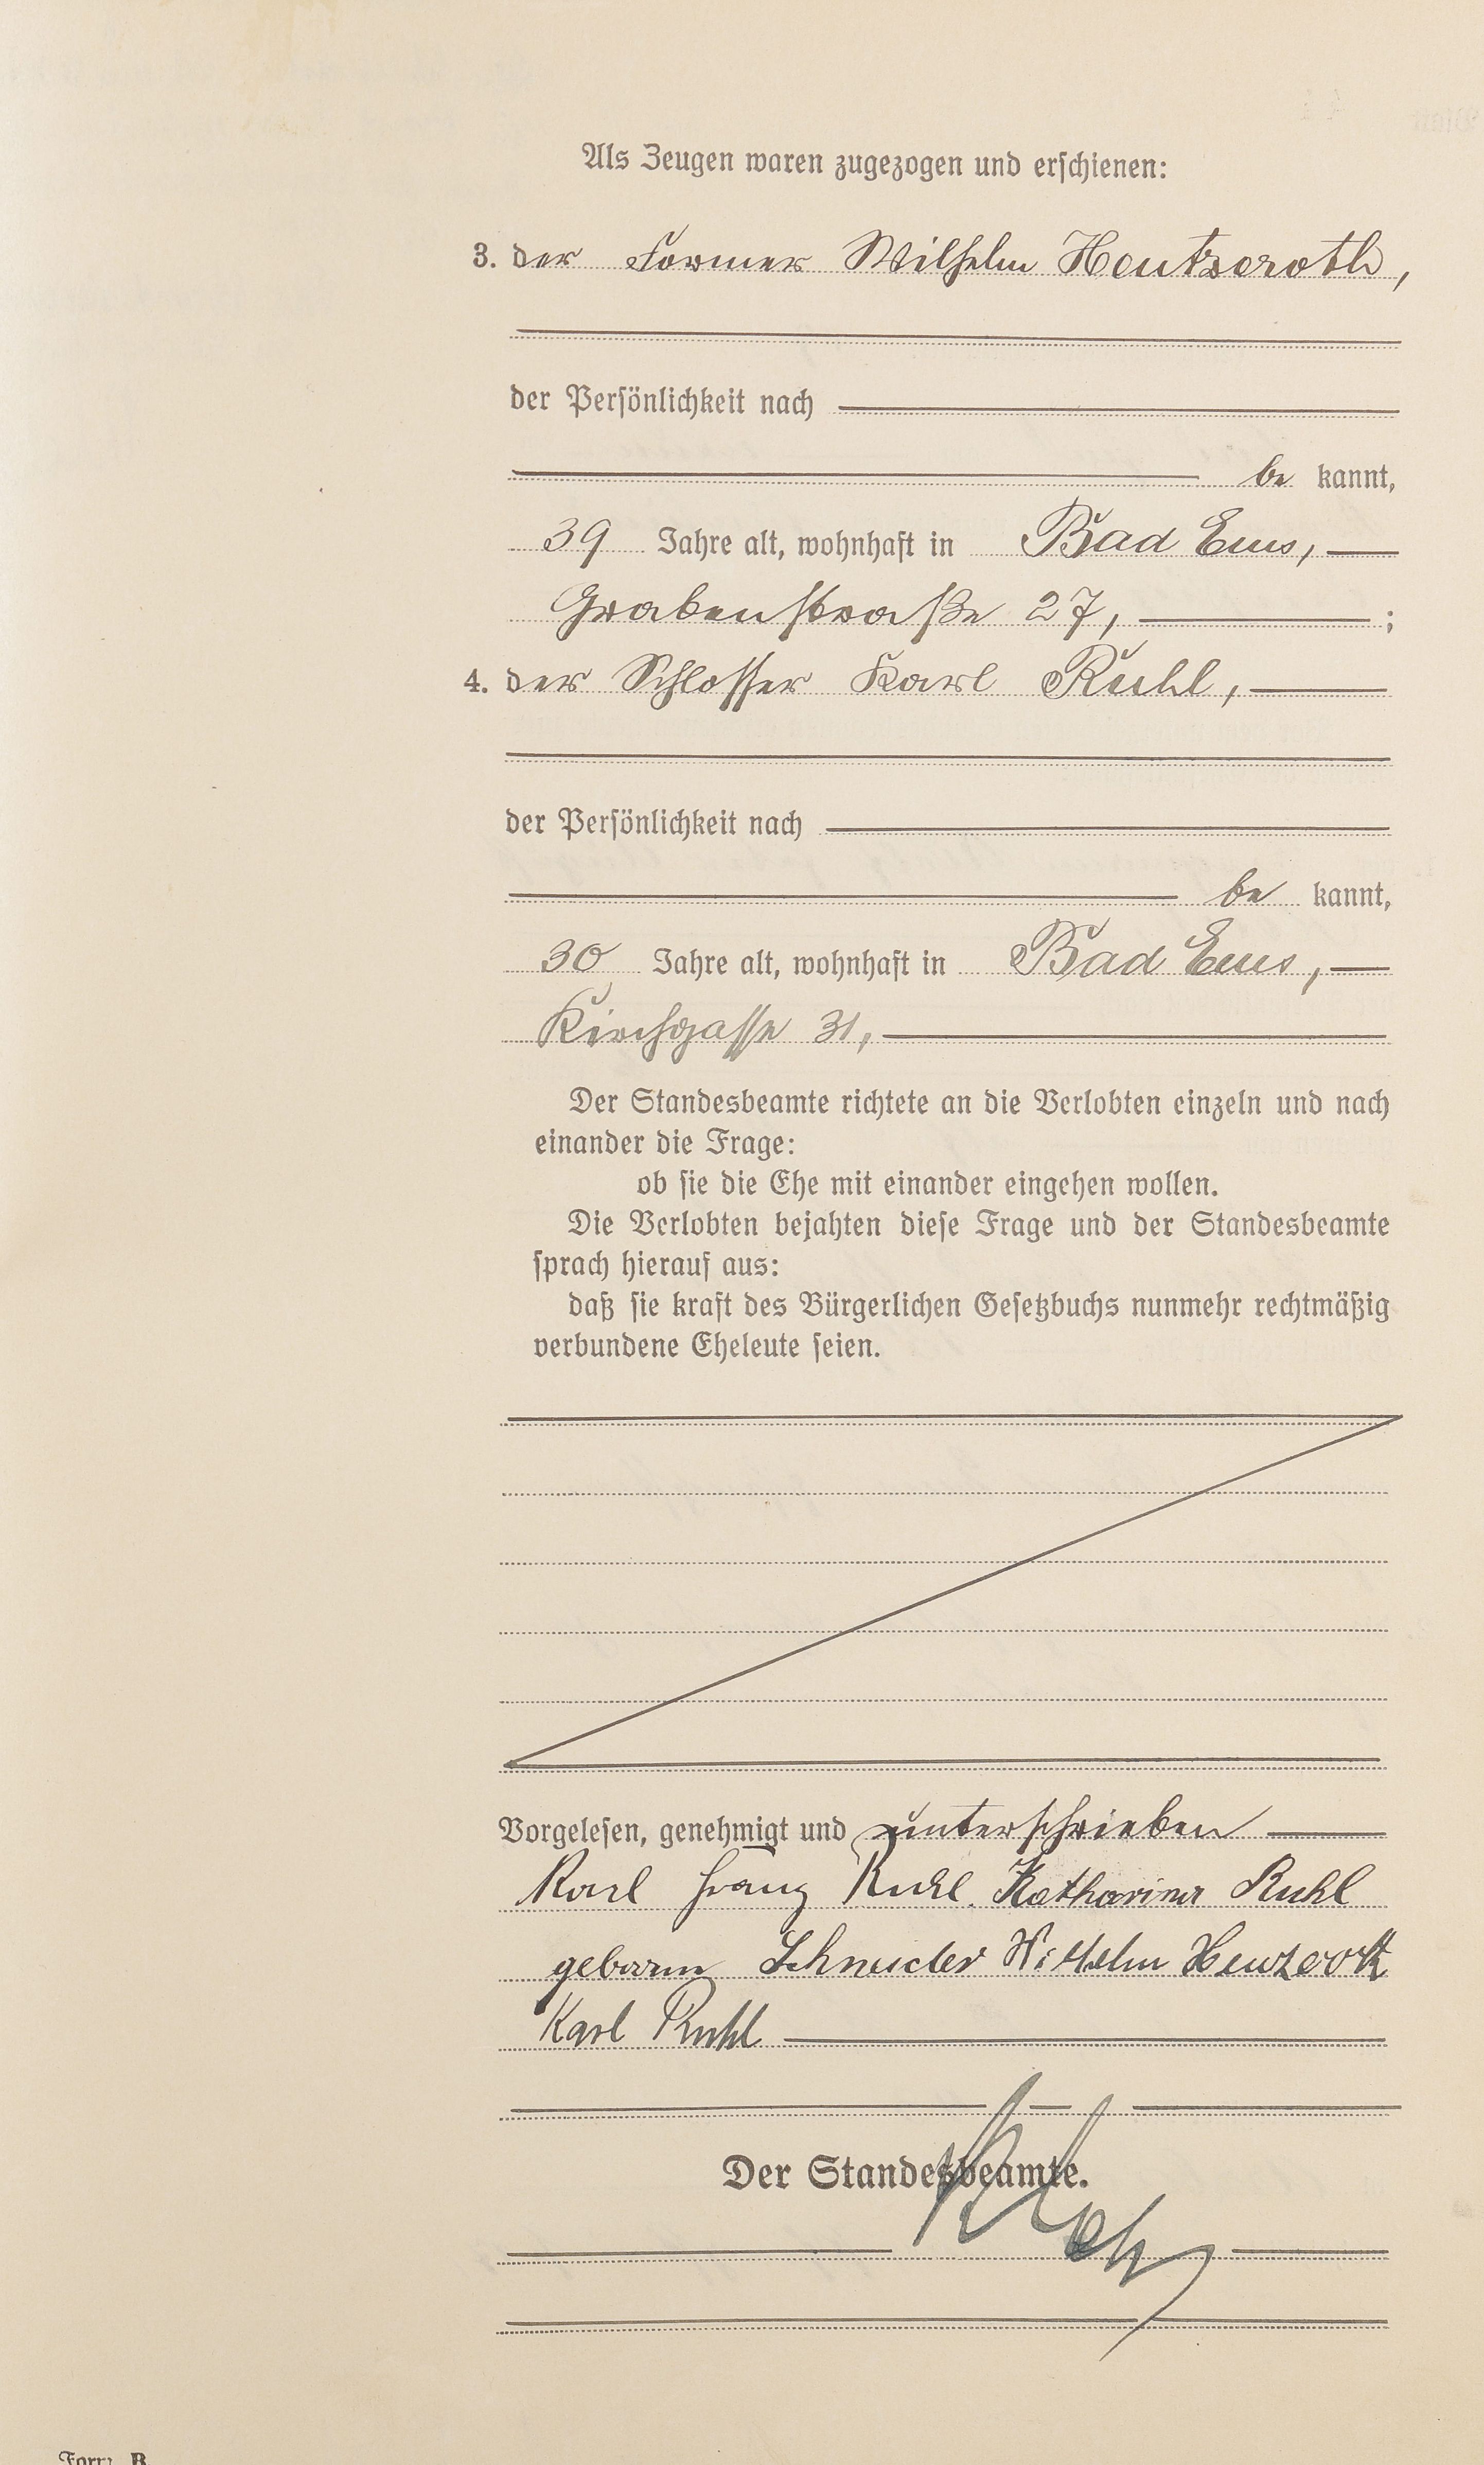 Als Zeugen waren zugezogen und erschienen:
3. der Former Wilhelm Heutzeroth,
der Persönlichkeit nach
be kannt,
39 Jahre alt, wohnhaft in Bad Ems,
Grabenstraße 27, ;
4. der Schlosser Karl Ruhl,
der Persönlichkeit nach
be kannt,
30 Jahre alt, wohnhaft in Bad Ems,
Kirchgasse 31,
Der Standesbeamte richtete an die Verlobten einzeln und nach
einander die Frage:
ob sie die Ehe mit einander eingehen wollen.
Die Verlobten bejahten diese Frage und der Standesbeamte
sprach hierauf aus:
daß sie kraft des Bürgerlichen Gesetzbuchs nunmehr rechtmäßig
verbundene Eheleute seien.
Vorgelesen, genehmigt und unterschrieben
Karl Franz Ruhl. Katharina Ruhl
geboren Schneider Wilhelm
Karl Ruhl
Der Standesbeamte.
B